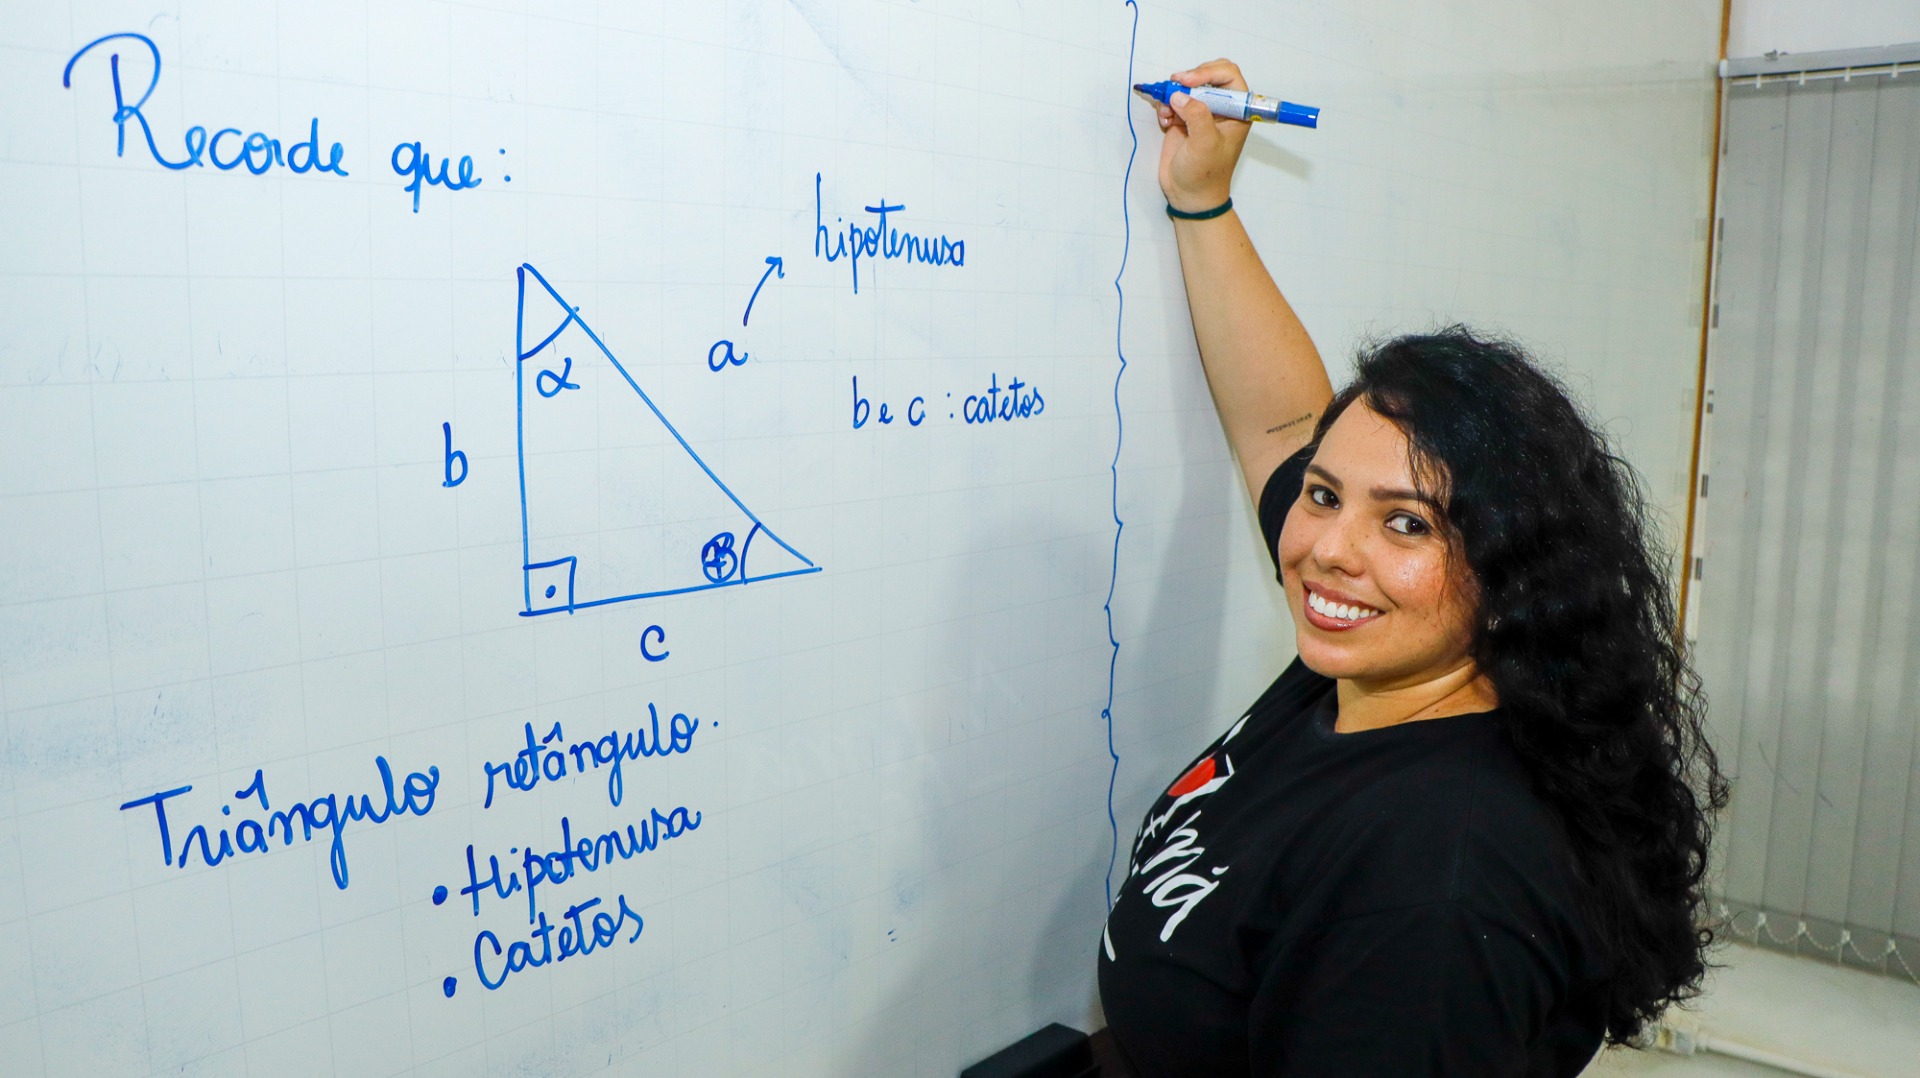 Recorde que:
hipotenusa
a
α
b e c : catetos
b
c
Triângulo retângulo.
• Hipotenusa
• Catetos